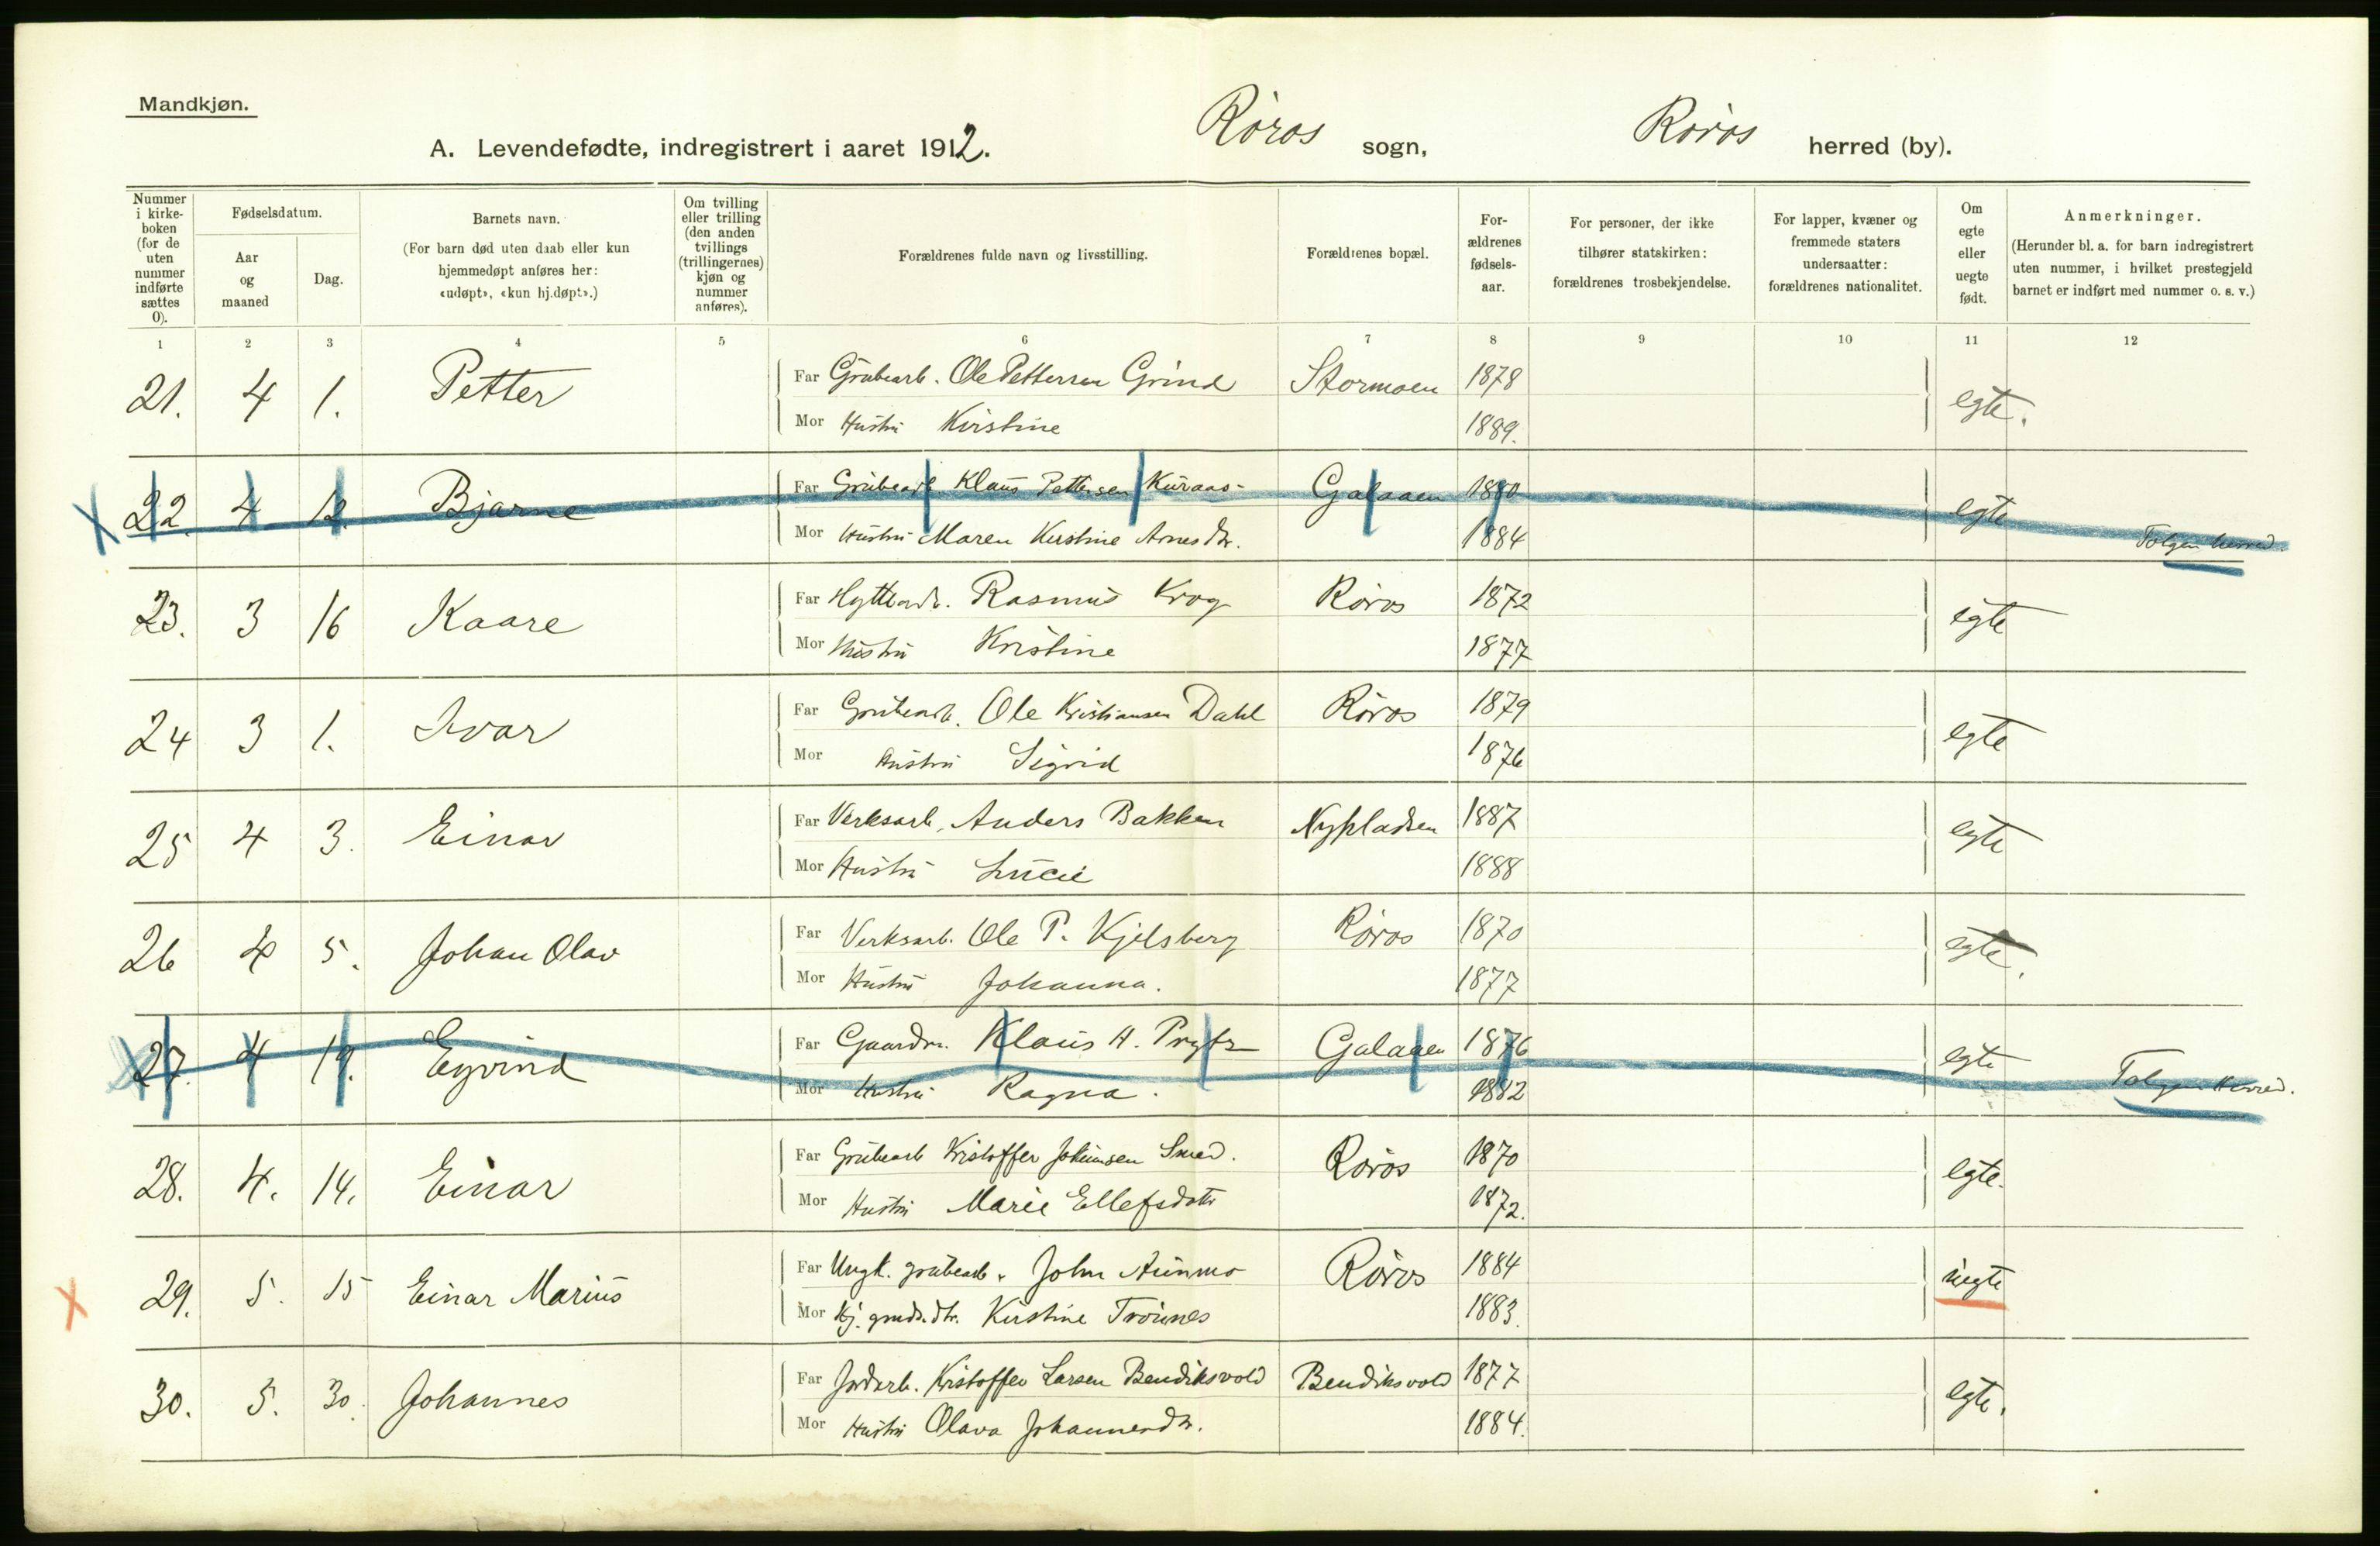 Mandkjøn.
A. Levendefødte, indregistrert i aaret 1912. Røros sogn, Røros herred (by).
Nummer i kirke-boken (for de uten nummer indførte sættes 0).
Fødselsdatum.
Aar og maaned
Dag.
Barnets navn.
(For barn død uten daab eller kun hjemmedøpt anføres her: «udøpt», «kun hj.døpt».)
Om tvilling eller trilling (den anden tvillings (trillingernes) kjøn og nummer anføres).
Forældrenes fulde navn og livsstilling.
Forældrenes bopæl.
For-ældrenes fødsels-aar.
For personer, der ikke tilhører statskirken: forældrenes trosbekjendelse.
For lapper, kvæner og fremmede staters undersaatter: forældrenes nationalitet.
Om egte eller uegte født.
Anmerkninger.
(Herunder bl. a. for barn indregistrert uten nummer, i hvilket prestegjeld barnet er indført med nummer o. s. v.)
1 2 3 4 5 6 7 8 9 10 11 12
21. 4 1. Petter Far Grubearb. Ole Pettersen Grind Stormoen 1878 egte.
Mor Hustru Kirstine 1889.
X 22 4 12. Bjarne Far Grubearb. Klaus Pettersen Kuraas Galaaen 1880 egte Tolgen herred.
Mor Hustru Maren Kirstine Arnesdtr. 1884
23. 3 16 Kaare Far Hyttearb. Rasmus Krog Røros 1872 egte
Mor Hustru Kristine 1877
24 3 1. Ivar Far Grubearb. Ole Kristiansen Dahl Røros 1879 egte
Mor Hustru Sigrid 1876
25 4 3. Einar Far Verksarb. Anders Bakken Nypladsen 1887 egte
Mor Hustru Lucie 1888
26 4 5. Johan Olav Far Verksarb. Ole P. Kjelsberg Røros 1870 egte.
Mor Hustru Johanna. 1877
X 27. 4 19. Eyvind Far Gaardbr. Klaus H. Prytz Galaaen 1876 egte Tolgen herred.
Mor Hustru Ragna. 1882
28. 4. 14. Einar Far Grubearb Kristoffer Johnsen Smed. Røros 1870 egte.
Mor Hustru Marie Ellefsdatr 1872.
X 29. 5. 15 Einar Marius Far Ungk. grubearb. John Aunmo Røros 1884 uegte
Mor Kirstine Trøines 1883.
30. 5. 30. Johannes Far Jordarb. Kristoffer Larsen Bendiksvold Bendiksvold 1877 egte.
Mor Hustru Olava Johannesdtr. 1884.